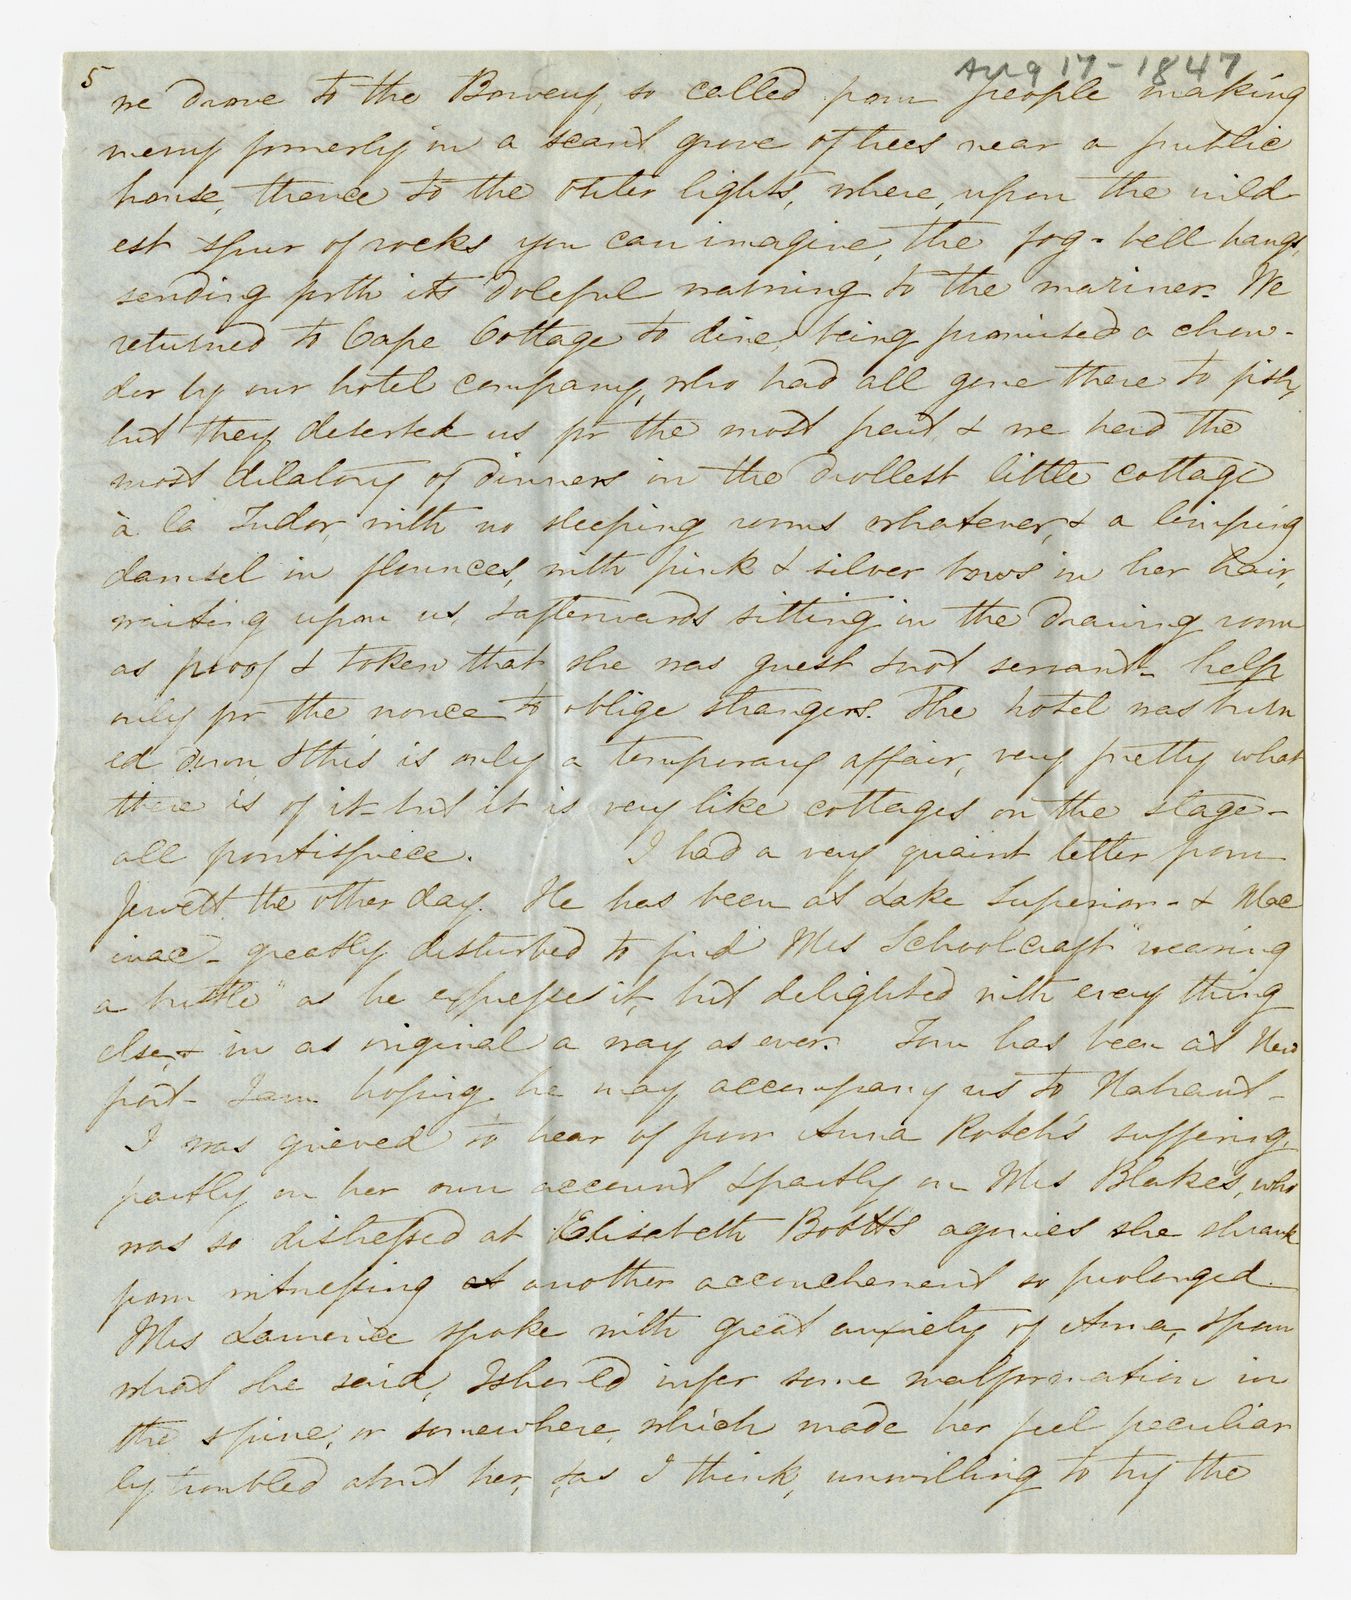 5
Aug 17 - 1847
we drove to the Bowery, so called from people making
merry formerly in a scant grove of trees near a public
house, thence to the outer lights, where, upon the wild-
est spur of rocks you can imagine, the fog-bell hangs,
sending forth its doleful warning to the mariner. We
returned to Cape Cottage to dine, being promised a chow-
der by our hotel company, who had all gone there to fish,
but they deserted us for the most part, & we had the
most dilatory of dinners in the drollest little cottage
à la Tudor, with no sleeping rooms whatever, & a limping
damsel in flounces, with pink & silver bows in her hair,
waiting upon us, & afterwards sitting in the drawing room
as proof & token that she was guest & not servant - help
only for the nonce to oblige strangers. The hotel was burn
ed down, & this is only a temporary affair, very pretty what
there is of it - but it is very like cottages on the stage -
all frontispiece. I had a very quaint letter from
Jewett the other day. He has been at Lake Superior - & Mac
inac - greatly disturbed to find Mrs Schoolcraft "wearing
a bustle" as he expresses it, but delighted with every thing
else, & in as original a way as ever. Tom has been at New
port - I am hoping he may accompany us to Nahant -
I was grieved to hear of poor Anna Rotch's suffering,
partly on her own account & partly on Mrs Blake's, who
was so distressed at Elisabeth Bott's agonies she shrank
from witnessing at another accouchement so prolonged.
Mrs Lawrence spoke with great anxiety of Anna, & from
what she said, I should infer some malformation in
the spine, or somewhere, which made her feel peculiar
ly troubled about her, & as I think, unwilling to try the